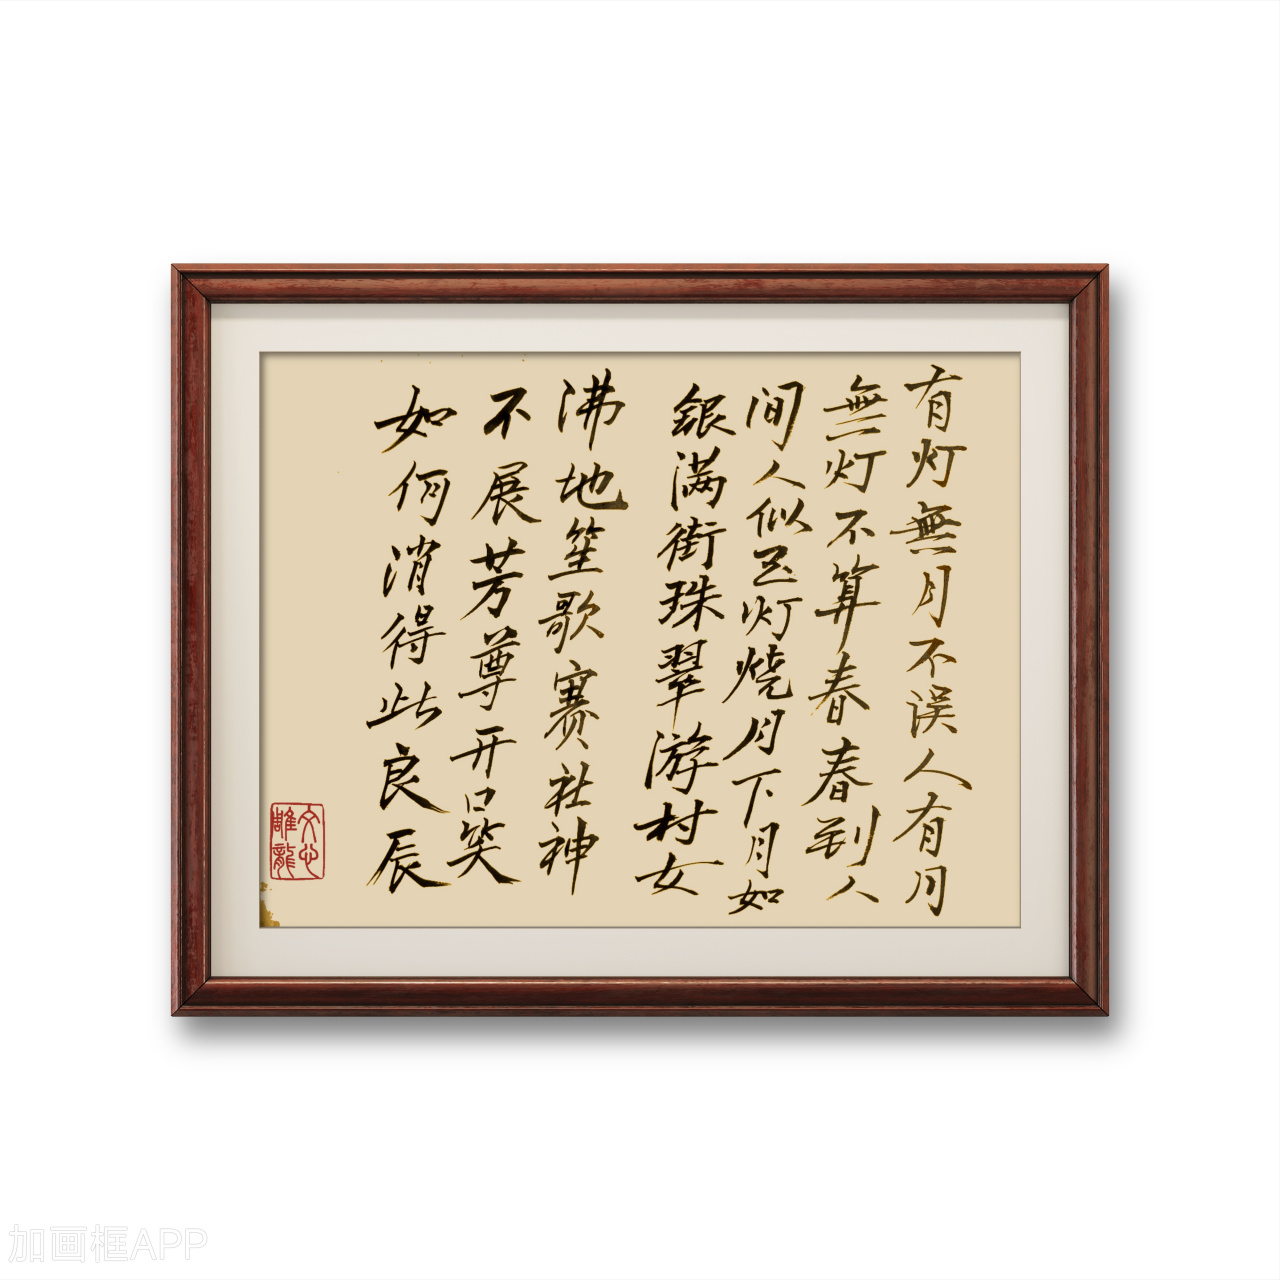 有灯無月不误人有月
無灯不算春春到人
间人似玉灯烧月下月如
银满街珠翠游村女
沸地笙歌赛社神
不展芳尊开口笑
如何消得此良辰
文心
雕龍
加画框APP